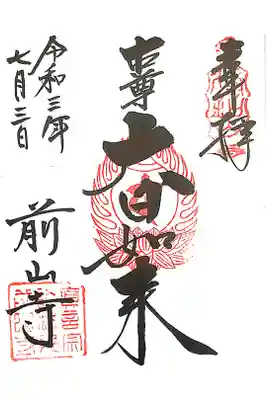 奉拝
本尊
大日如来
令和三年
七月三日
前山寺